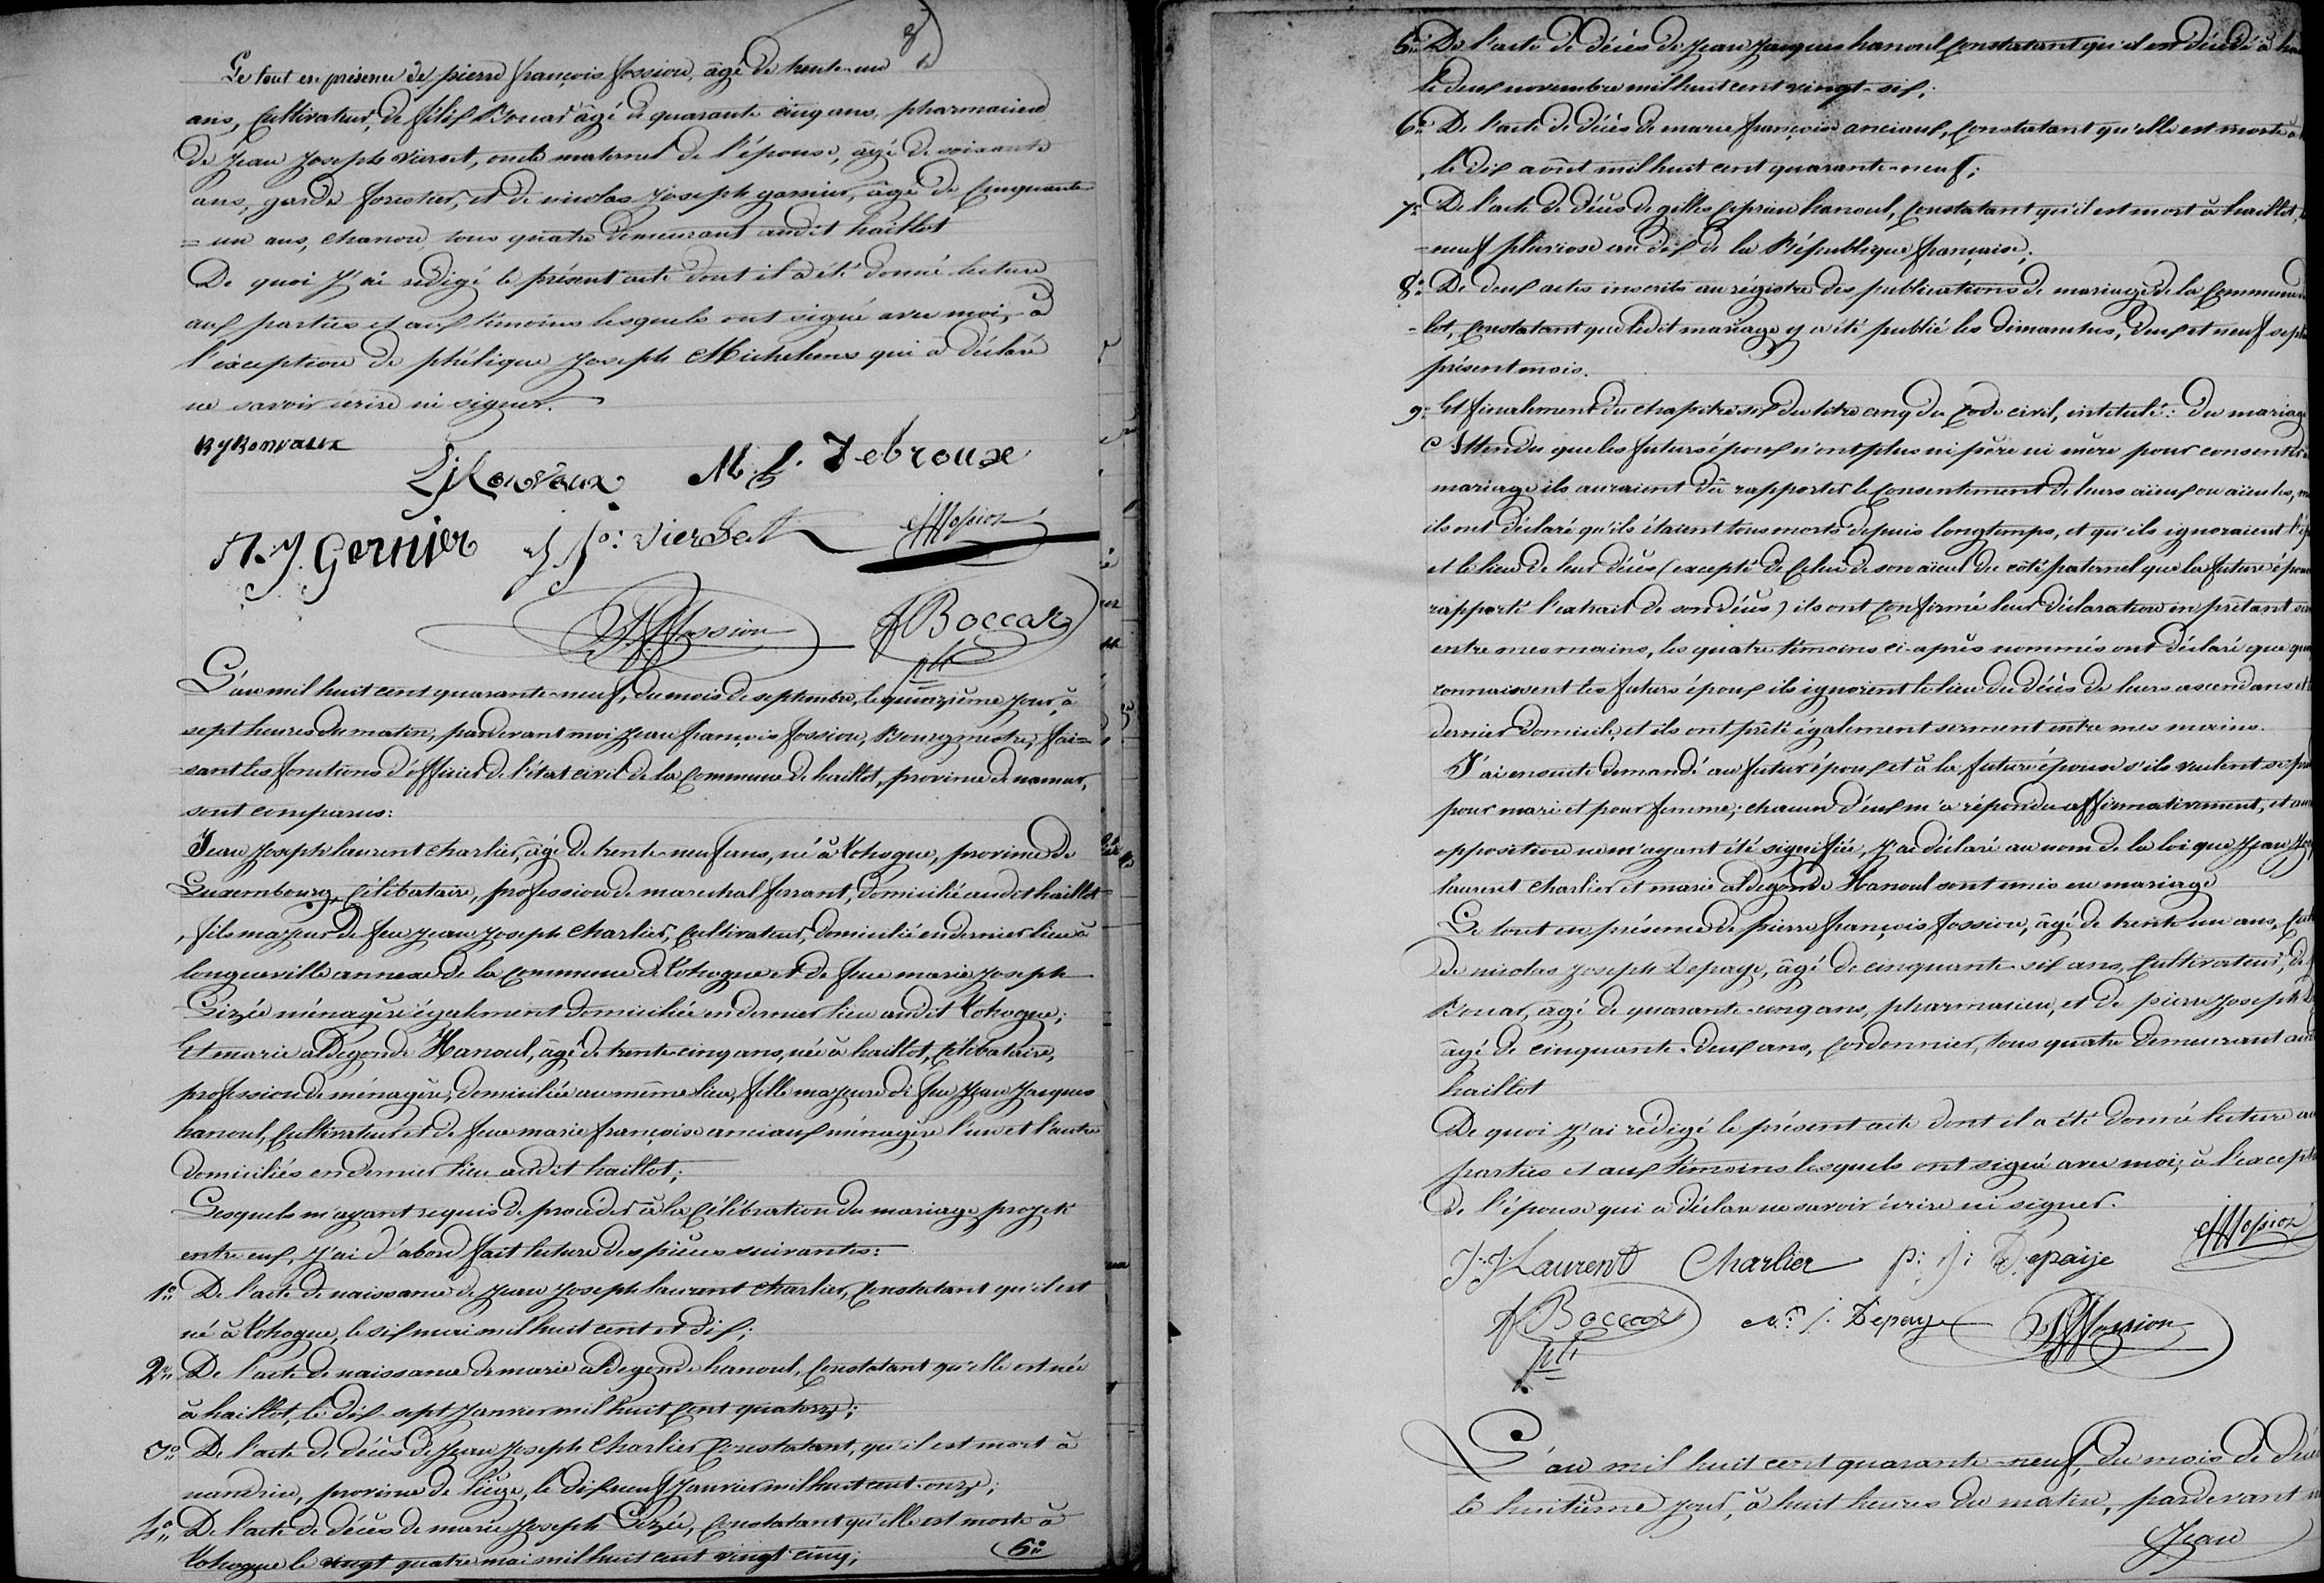 Le tout en présence de pierre françois fossion, âgé de trente-un
ans, Cultivateur, de félix Bocar âgé de quarante cinq ans, pharmacien
de Jean Joseph vierset, oncle maternel de l'épouse, âgé de soixante
ans, garde forestier, et de nicolas Joseph garnier, âgé de Cinquante
= un ans, charron, tous quatre demeurant audit haillot
De quoi J'ai rédigé le présent acte dont il a été donné lecture
aux parties et aux témoins lesquels ont signé avec moi, à
l'éxception de Joseph qui a déclaré
ne savoir écrire ni signer.
Bonvaux
M. J. Debrouxe
N. J. Gernier J. Jo: vierset JFfossion
PFfossion f Boccar
phl
L'an mil huit cent quarante-neuf, du mois de septembre, le quinzième jour, à
sept heures du matin, pardevant moi Jean françois fossion, Bourgmestre, fai=
=sant les fonctions d'officier de l'état civil de la Commune de haillot, province de namur,
sont comparus:
Jean Joseph laurent charlier, âgé de trente-neuf ans, né à Tohogne, province de
Luxembourg, Célibataire, profession de marechal ferrant, domicilié audit haillot
, fils majeur de feu Jean Joseph Charlier, Cultivateur, domicilié en dernier lieu à
longueville annexe de la Commune de Tohogne et de feue marie Joseph
Lizée ménagère également domiciliée en dernier lieu audit Tohogne;
Et marie aldegonde Hanoul, âgé de trente-cinq ans, née à haillot, Célibataire,
profession de ménagère, domiciliée au même lieu, fille majeure de feu Jean Jacques
hanoul, Cultivateur et de feue marie françoise anciaux ménagère l'un et l'autre
domiciliés en dernier lieu audit haillot;
Lesquels m'ayant requis de procéder à la Célébration du mariage projeté
entre eux, J'ai d'abord fait lecture des pièces suivantes:
1º De l'acte de naissance de Jean Joseph laurent Charlier, Constatant qu'il est
né à Tohogne, le six mai mil huit cent et dix;
2º De l'acte de naissance de marie aldegonde hanoul, Constatant qu'elle est née
à haillot, le dix-sept Janvier mil huit Cent quatorze;
3º De l'acte de décès de Jean Joseph Charlier Constatant, qu'il est mort à
nandrin, province de liège, le dix neuf Janvier mil huit cent-onze;
4º De l'acte de décès de marie Joseph Lizée, Constatant qu'elle est morte à
Tohogne le vingt quatre mai mil huit cent vingt cinq;
5º De l'acte de décès de Jean Jacques hanoul Constatant qu'il est décédé à
le deux novembre mil huit cent vingt-six;
6º De l'acte de décès de marie françoise anciaux, Constatant qu'elle est morte à
, le dix août mil huit cent quarante-neuf;
7º De l'acte de décès de gilles Ciprien hanoul, Constatant qu'il est mort à haillot,
=neuf pluviose an dix de la République française;
8º De deux actes inscrits au régistre des publications de mariage de la Commune
=lot, Constatant que ledit mariage y a été publié les dimanches, deux et neuf
présent mois.
9º Et finalement du chapitre six du titre cinq du Code civil, intitulé: du mariage
Attendu que les futurs époux n'ont plus ni père ni mère pour consentir
mariage ils auraient dû rapporter le Consentement de leurs aïeux ou aïeules,
ils ont déclaré qu'ils étaient tous morts depuis longtemps, et qu'ils ignoraient
et le lieu de leur décès (excepté de Celui de son aïeul du côté paternel que la future épouse
rapporté l'extrait de son décès) ils ont Confirmé leur déclaration en prêtant
entre mes mains, les quatre témoins ci-après nommés ont déclaré que
connaissent les futurs époux ils ignorent le lieu du décès de leurs ascendans et
dernier domicile, et ils ont prêté également serment entre mes mains.
J'ai ensuite demandé au futur époux et à la future épouse s'ils veulent se
pour mari et pour femme; chacun d'eux m'a répondu affirmativement, et
opposition ne m'ayant été signifiée, J'ai déclaré au nom de la loi que Jean
laurent charlier et marie aldegonde Hanoul sont unis en mariage
Le tout en présence de pierre françois fossion, âgé de trente un ans,
De nicolas Joseph Depaye, âgé de cinquante-six ans, Cultivateur, de
Bocar, âgé de quarante-cinq ans, pharmacien, et de pierre Joseph
âgé de cinquante-deux ans, Cordonnier, tous quatre demeurant
haillot
De quoi J'ai rédigé le présent acte dont il a été donné lecture
parties et aux témoins lesquels ont signé avec moi, à
de l'épouse qui a déclaré ne savoir écrire ni signer.
J. J Laurent Charlier p: j: Depaije JFfossion
f Boccar N. J. Depaye PFfossion
phl
L'an mil huit cent quarante-neuf, du mois de
le huitième jour, à huit heures du matin, pardevant
Jean